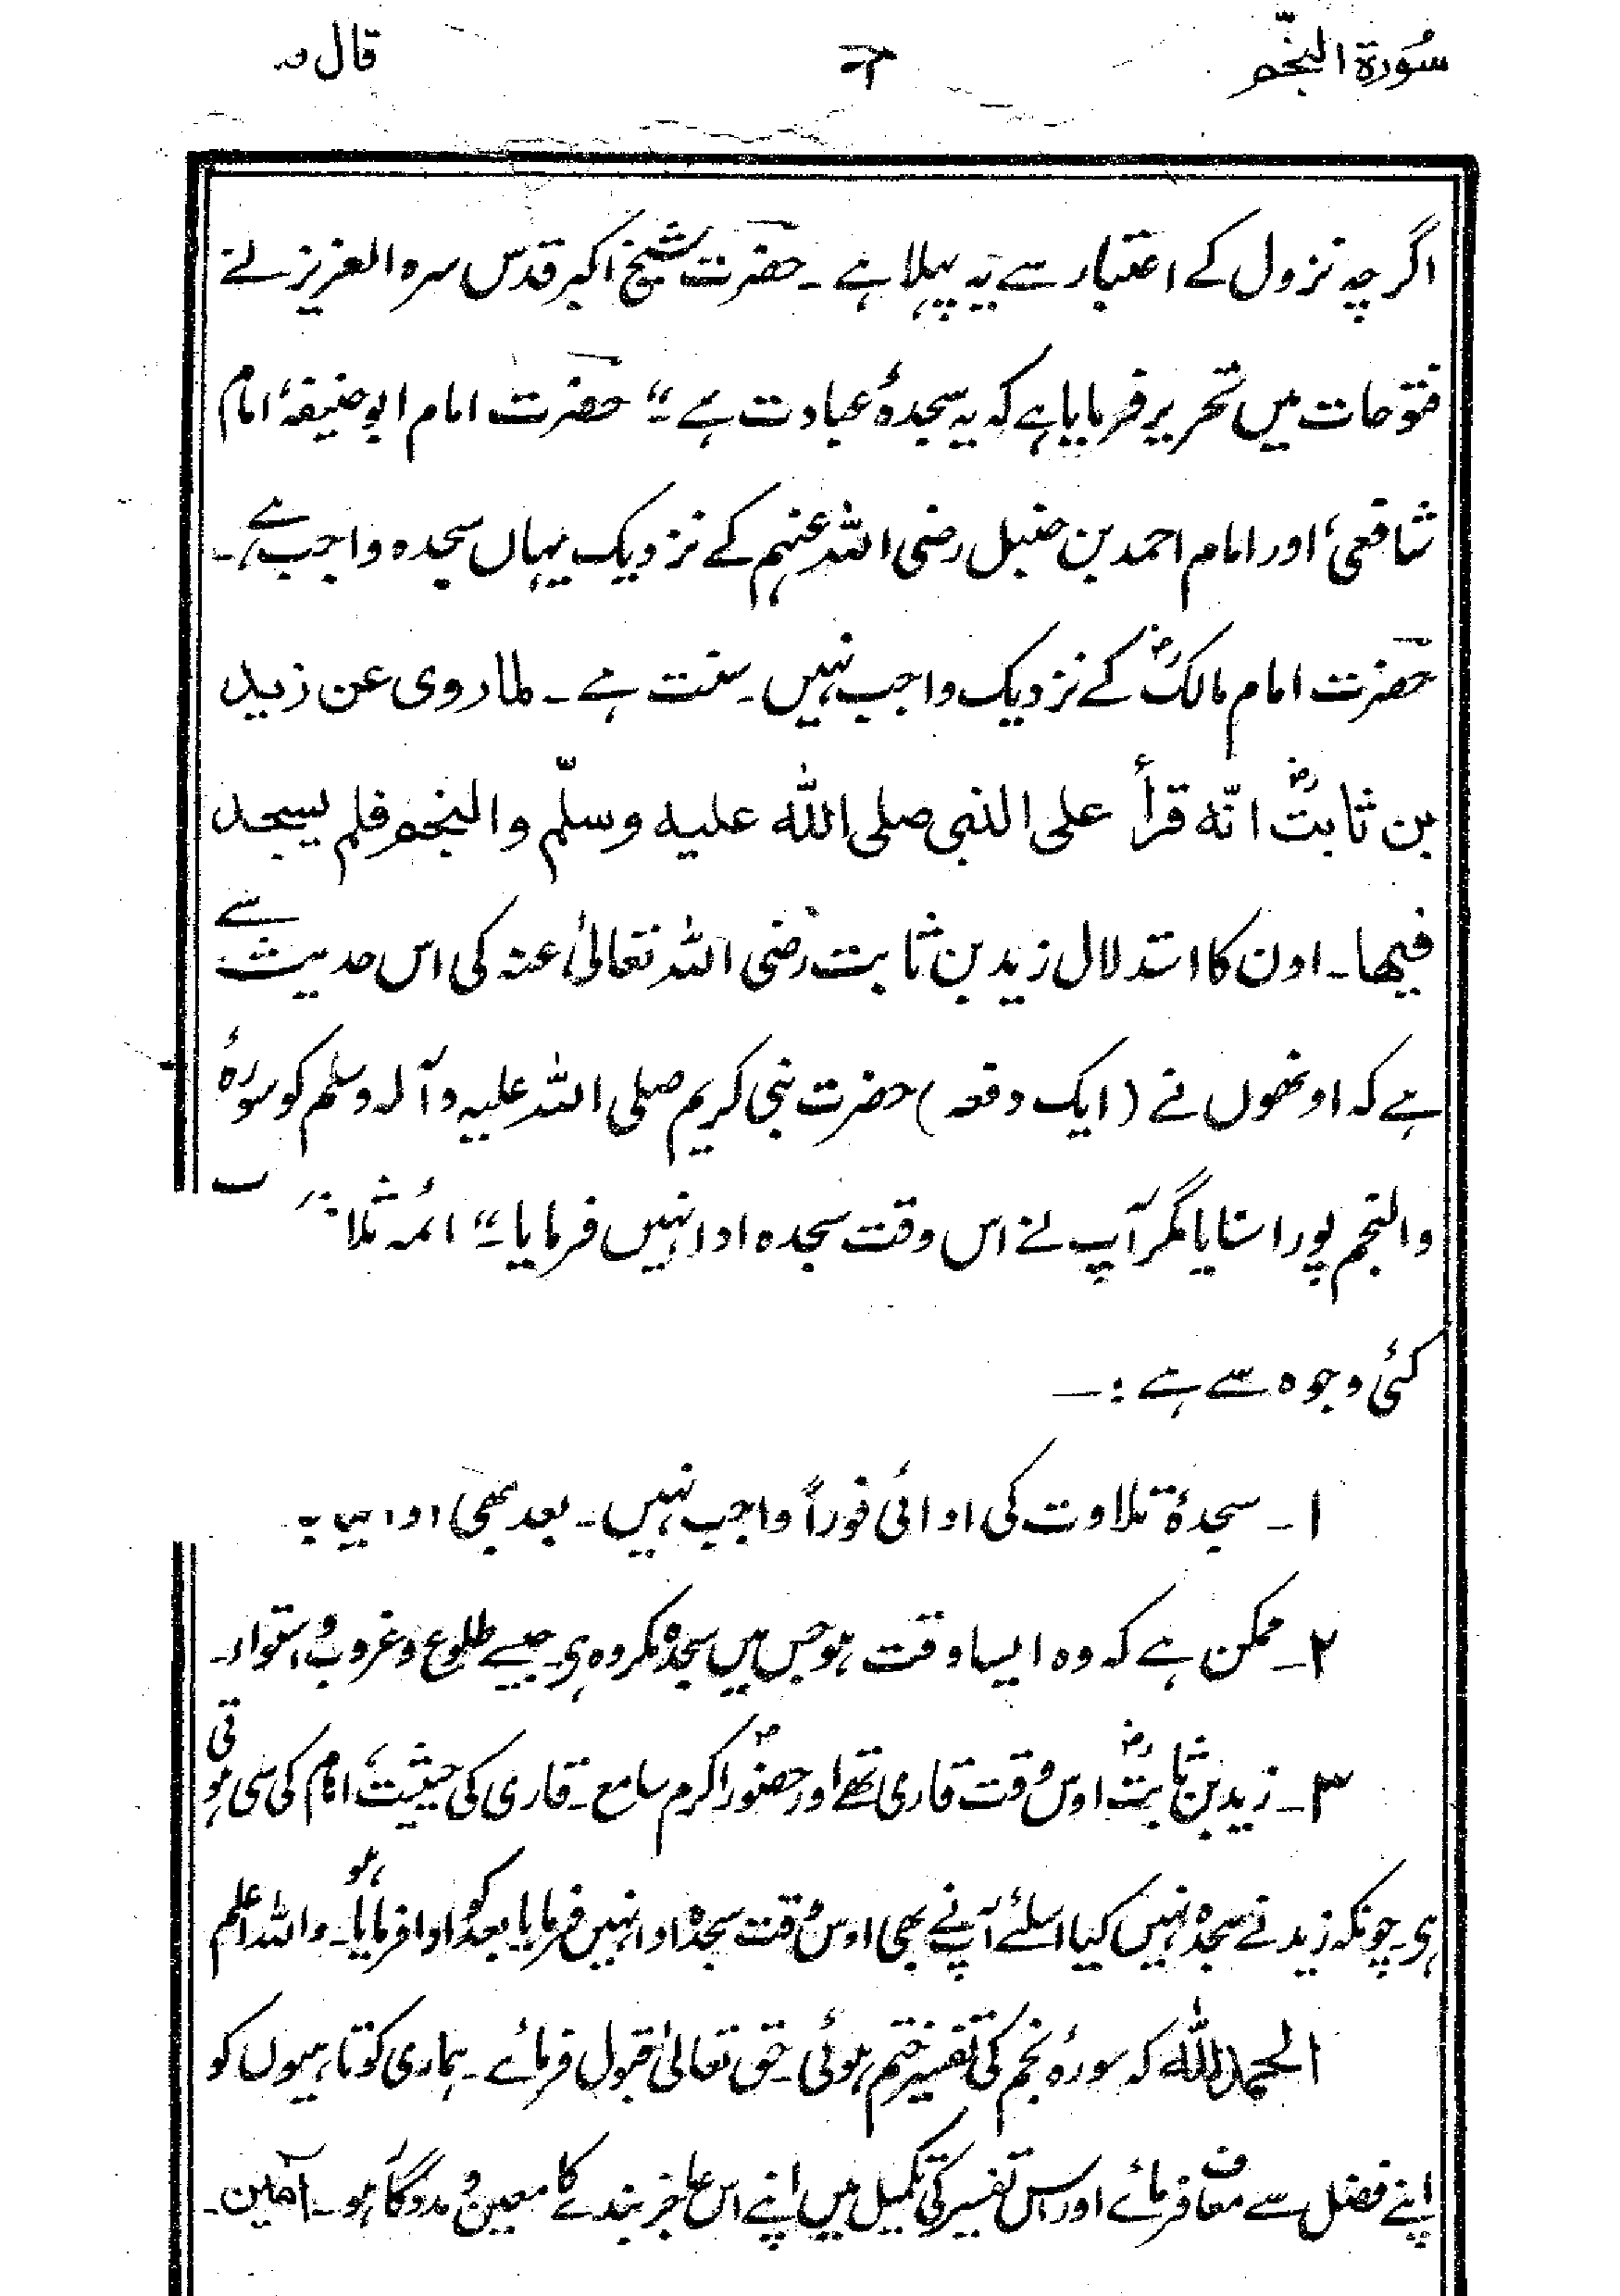 سُورة النّجم
قال
اگرچہ نزول کے اعتبار سے یہ پہلا ہے ۔ حضرت شیخ اکبر قدس سرہ العزیز نے
فتوحات میں تحریر فرمایا ہے کہ یہ سجدۂ عبادت ہے ۔" حضرت امام ابو حنیفہ، امام
شافعی، اور امام احمد بن حنبل رضی اللہ عنہم کے نزدیک یہاں سجدہ واجب ہے ۔
حضرت امام مالکؒ کے نزدیک واجب نہیں ۔ سنت ہے ۔ لما روی عن زید
بن ثابتؓ انّه قرأ علی النبی صلی اللّٰه علیه وسلّم والنجم فلم یسجد
فیها ۔ اون کا استدلال زید بن ثابت رضی اللہ تعالیٰ عنہ کی اس حدیث سے
ہے کہ اونھوں نے (ایک دفعہ) حضرت نبی کریم صلی اللہ علیہ وآلہ وسلم کو سورۂ
والنجم پورا سنایا مگر آپ نے اس وقت سجدہ ادا نہیں فرمایا ۔" ائمہ ثلا
کئی وجوہ سے ہے :—
۱ ۔ سجدۂ تلاوت کی ادائی فوراً واجب نہیں ۔ بعد بھی ادا
۲ ۔ ممکن ہے کہ وہ ایسا وقت ہو جس میں سجدہ مکروہ ہی جیسے طلوع و غروب و استواء ۔
۳ ۔ زید بن ثابتؓ اوس وقت قاری تھے اور حضورؐ اکرم سامع ۔ قاری کی حیثیت امام کی سی ہوتی
ہی ۔ چونکہ زید نے سجدہ نہیں کیا اسلئے آپ نے بھی اوس وقت سجدہ ادا نہیں فرمایا بعد کو ادا فرمایا ہو ۔ واللہ اعلم
الحمدللّٰه کہ سورۂ نجم کی تفسیر ختم ہوئی ۔ حق تعالیٰ قبول فرمائے ۔ ہماری کوتاہیوں کو
اپنے فضل سے معاف فرمائے اور اس تفسیر کی تکمیل میں اپنے اس عاجز بندے کا معین و مددگار ہو ۔ آمین ۔